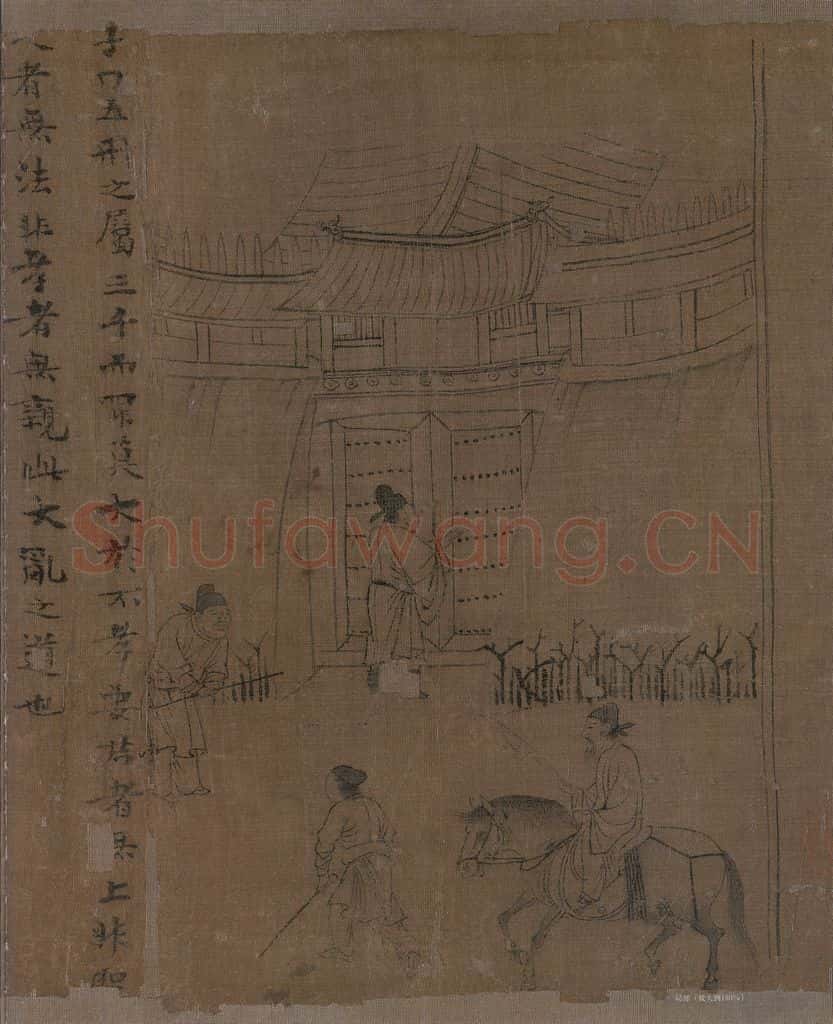 子曰五刑之屬三千而罪莫大於不孝要君者無上非聖
人者無法非孝者無親此大亂之道也
Shufawang.CN